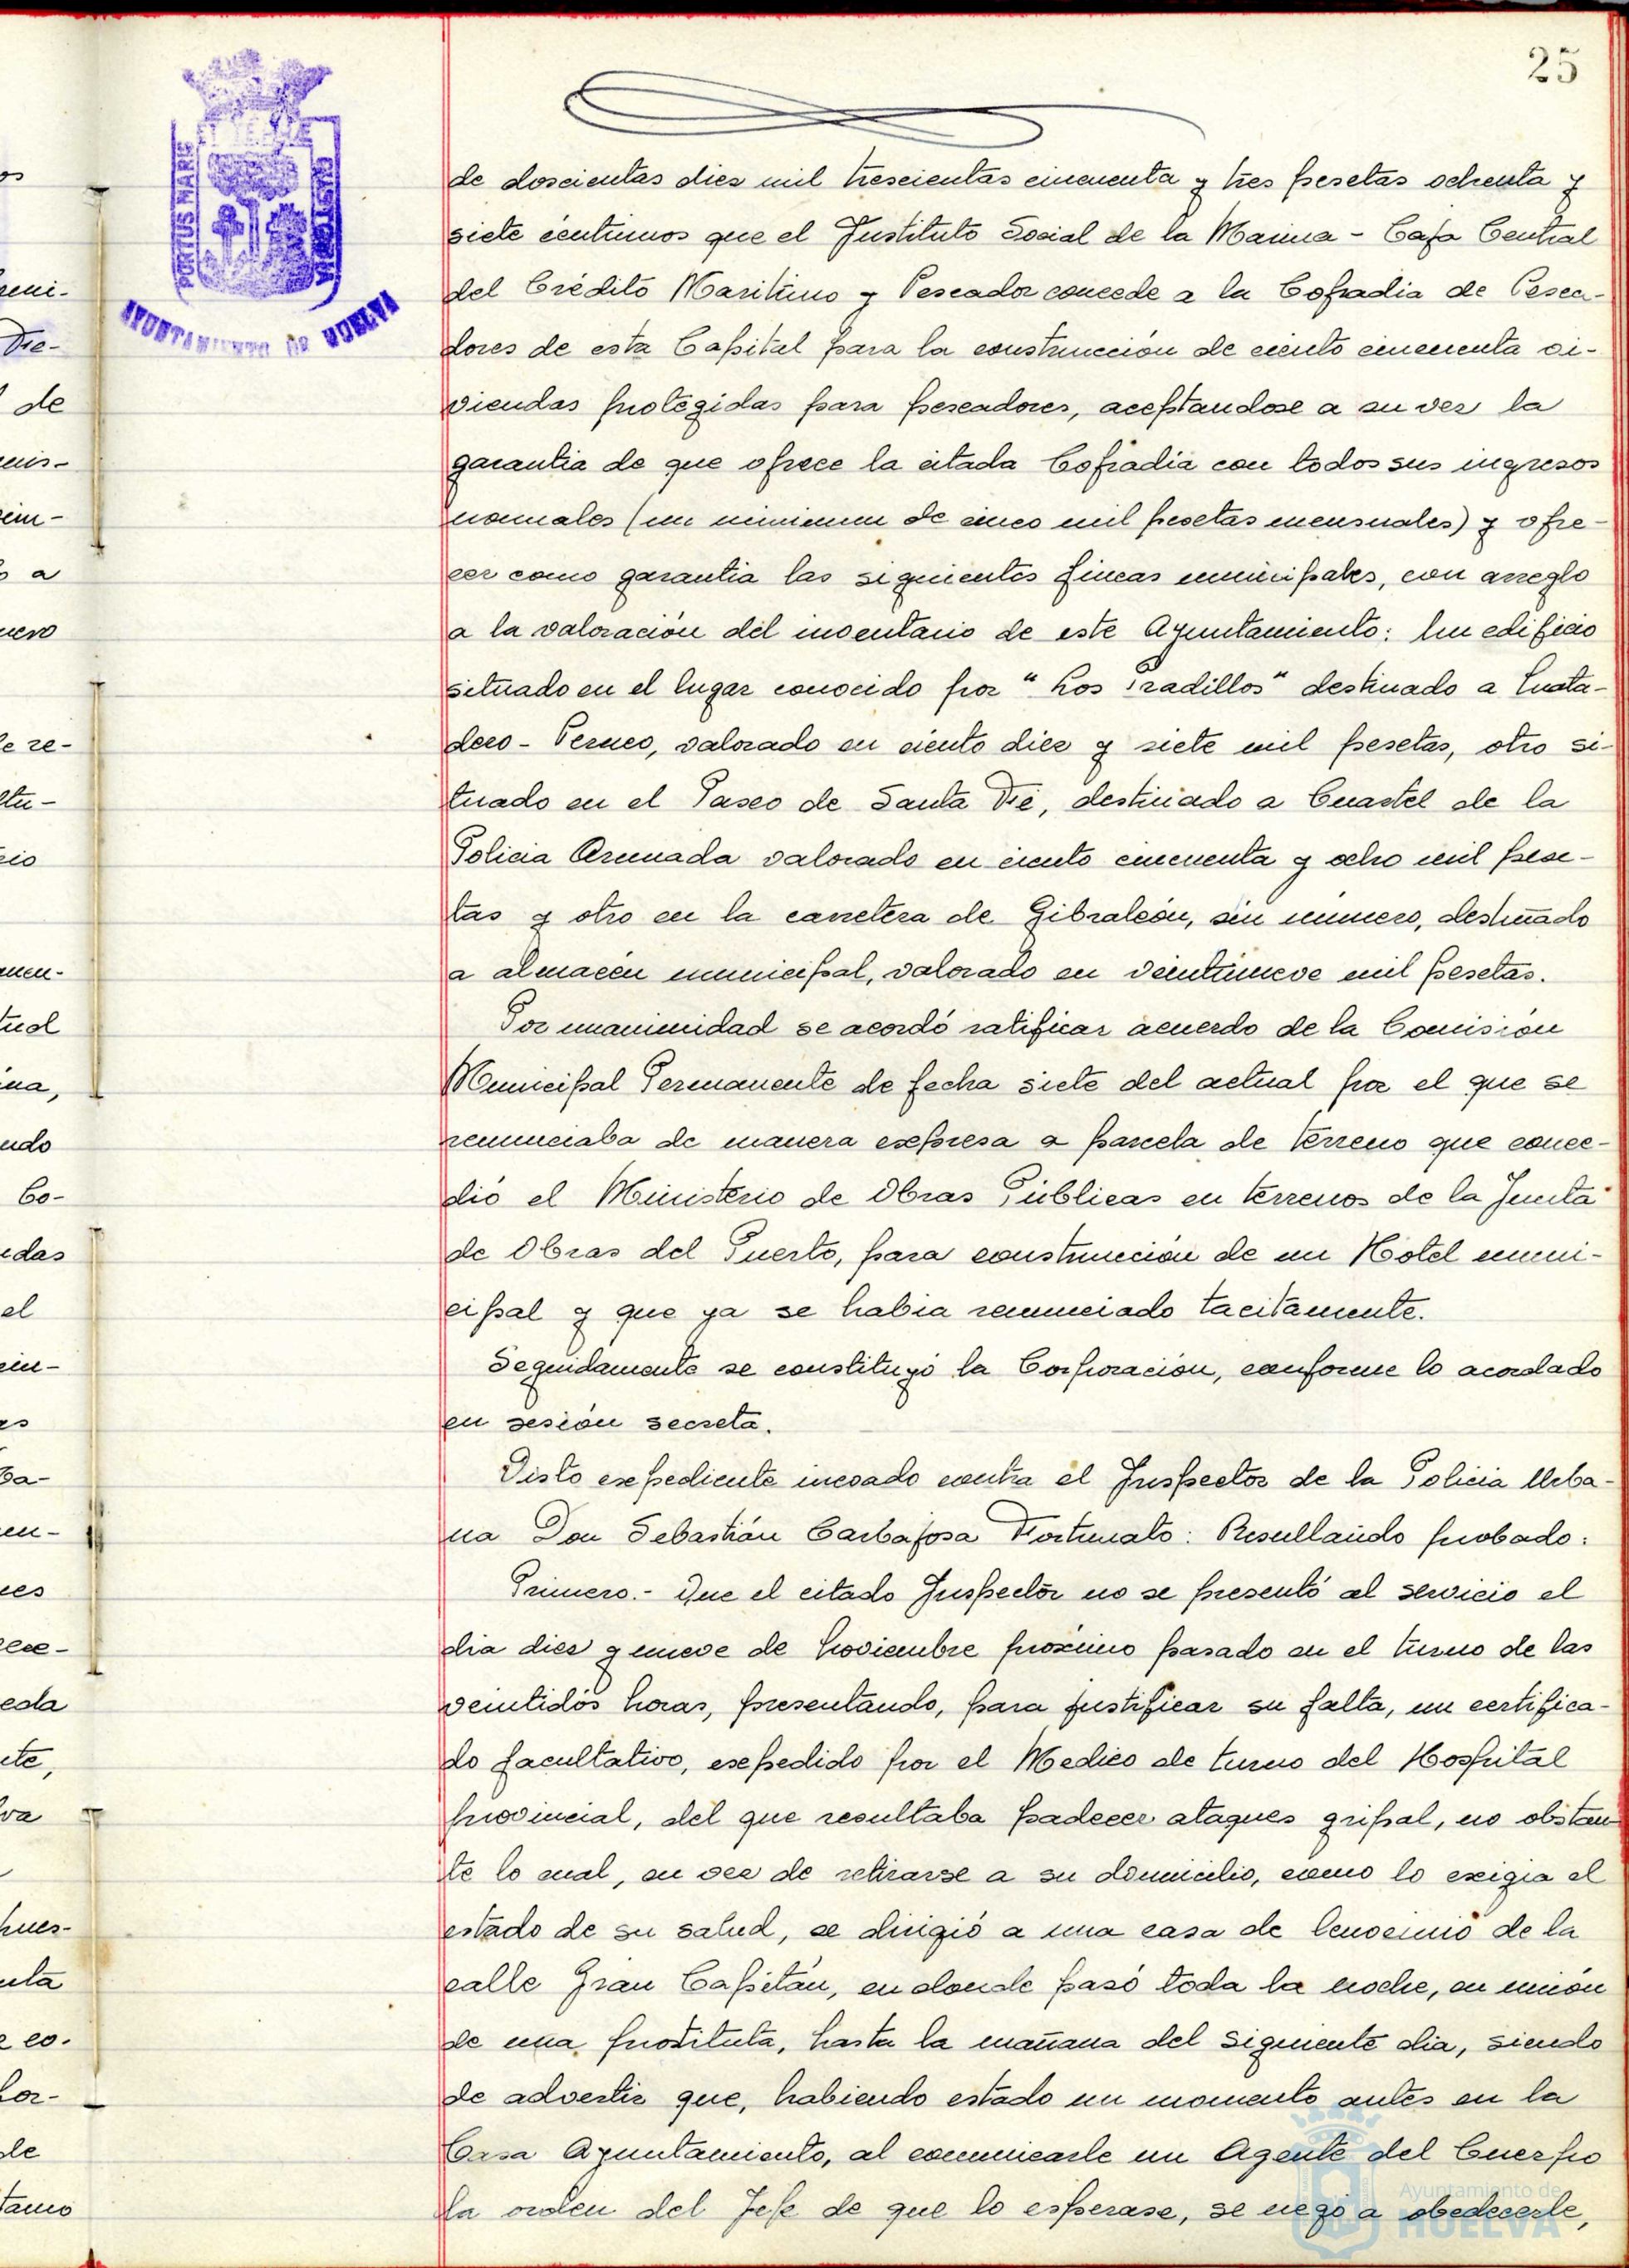 25
PORTUS MARIS
ET TERRE
CUSTODIA
AYUNTAMIENTO DE HUELVA
de doscientas diez mil trescientas cincuenta y tres pesetas ochenta y
siete céntimos que el Instituto Social de la Marina - Caja Central
del Crédito Maritimo y Pescador concede a la Cofradia de Pesca-
dores de esta Capital para la construcción de ciento cincuenta vi-
viendas protegidas para pescadores, aceptandose a su vez la
garantia de que ofrece la citada Cofradia con todos sus ingresos
normales (un minimum de cinco mil pesetas mensuales) y ofre-
cer como garantia las siguientes fincas municipales, con arreglo
a la valoración del inventario de este Ayuntamiento: Un edificio
situado en el lugar conocido por "Los Pradillos" destinado a
valorado en ciento diez y siete mil pesetas, otro si-
tuado en el Paseo de Santa Fé, destinado a Cuartel de la
Policia Armada valorado en ciento cincuenta y ocho mil pese-
tas y otro en la carretera de Gibraleón, sin número, destinado
a almacén municipal, valorado en veintinueve mil pesetas.
Por unanimidad se acordó ratificar acuerdo de la Comisión
Municipal Permanente de fecha siete del actual por el que se
renunciaba de manera expresa a parcela de terreno que conce-
dió el Ministerio de Obras Públicas en terrenos de la Junta
de Obras del Puerto, para construcción de un Hotel muni-
cipal y que ya se habia renunciado tacitamente.
Seguidamente se constituyó la Corporación, conforme lo acordado
en sesión secreta.
Visto expediente incoado contra el Inspector de la Policia Urba-
na Don Sebastián Carbajosa Fortunato: Resultando probado:
Primero.- Que el citado Inspector no se presentó al servicio el
dia diez y nueve de Noviembre próximo pasado en el turno de las
veintidós horas, presentando, para justificar su falta, un certifica-
do facultativo, expedido por el Medico de turno del Hospital
provincial, del que resultaba padecer ataques gripal, no obstan-
te lo cual, en vez de retirarse a su domicilio, como lo exigia el
estado de su salud, se dirigió a una casa de lenocinio de la
calle Gran Capitán, en donde pasó toda la noche, en unión
de una prostituta, hasta la mañana del siguiente dia, siendo
de advertir que, habiendo estado un momento antes en la
Casa Ayuntamiento, al comunicarle un Agente del Cuerpo
la orden del Jefe de que lo esperase, se negó a obedecerle,
Ayuntamiento de
HUELVA